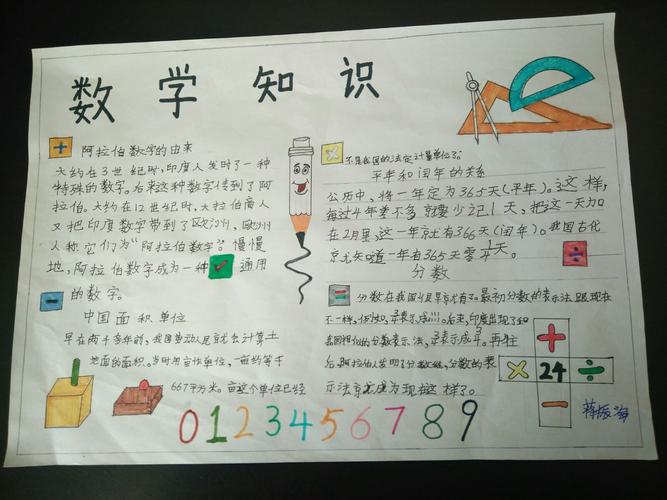 数学知识
阿拉伯数字的由来
大约在3世纪时,印度人发明了一种
特殊的数字。后来这种数字传到了阿
拉伯。大约在12世纪时,大拉伯商人
又把印度数字带到了欧洲洲,欧洲
人称它们为“阿拉伯数字”。慢慢
地,阿拉伯数字成为一种 通用
的数字。
中国面积单位
早在两千多年前,我国劳动人民就会计算土
地面积。当时用亩作单位,一亩约等于
667平方米。亩这个单位已经
不是我国的法定计量单位了。
平年和闰年的关系
公历中,将一年定为365天(平年)。这样,
每过4年差不多就要少记1天,把这一天加
在2月里,这一年就有366天(闰年)。我国古代
就知道一年有365天零1/4天。
分数
分数在我国很早就有了。最初分数的表示法跟现在
不一样。后来,印度出现了和
我国相似的分数表示法,
后,阿拉伯人发明了分数线,分数的表
示法就成为现在这样了。
+
× 24 ÷
−
0123456789